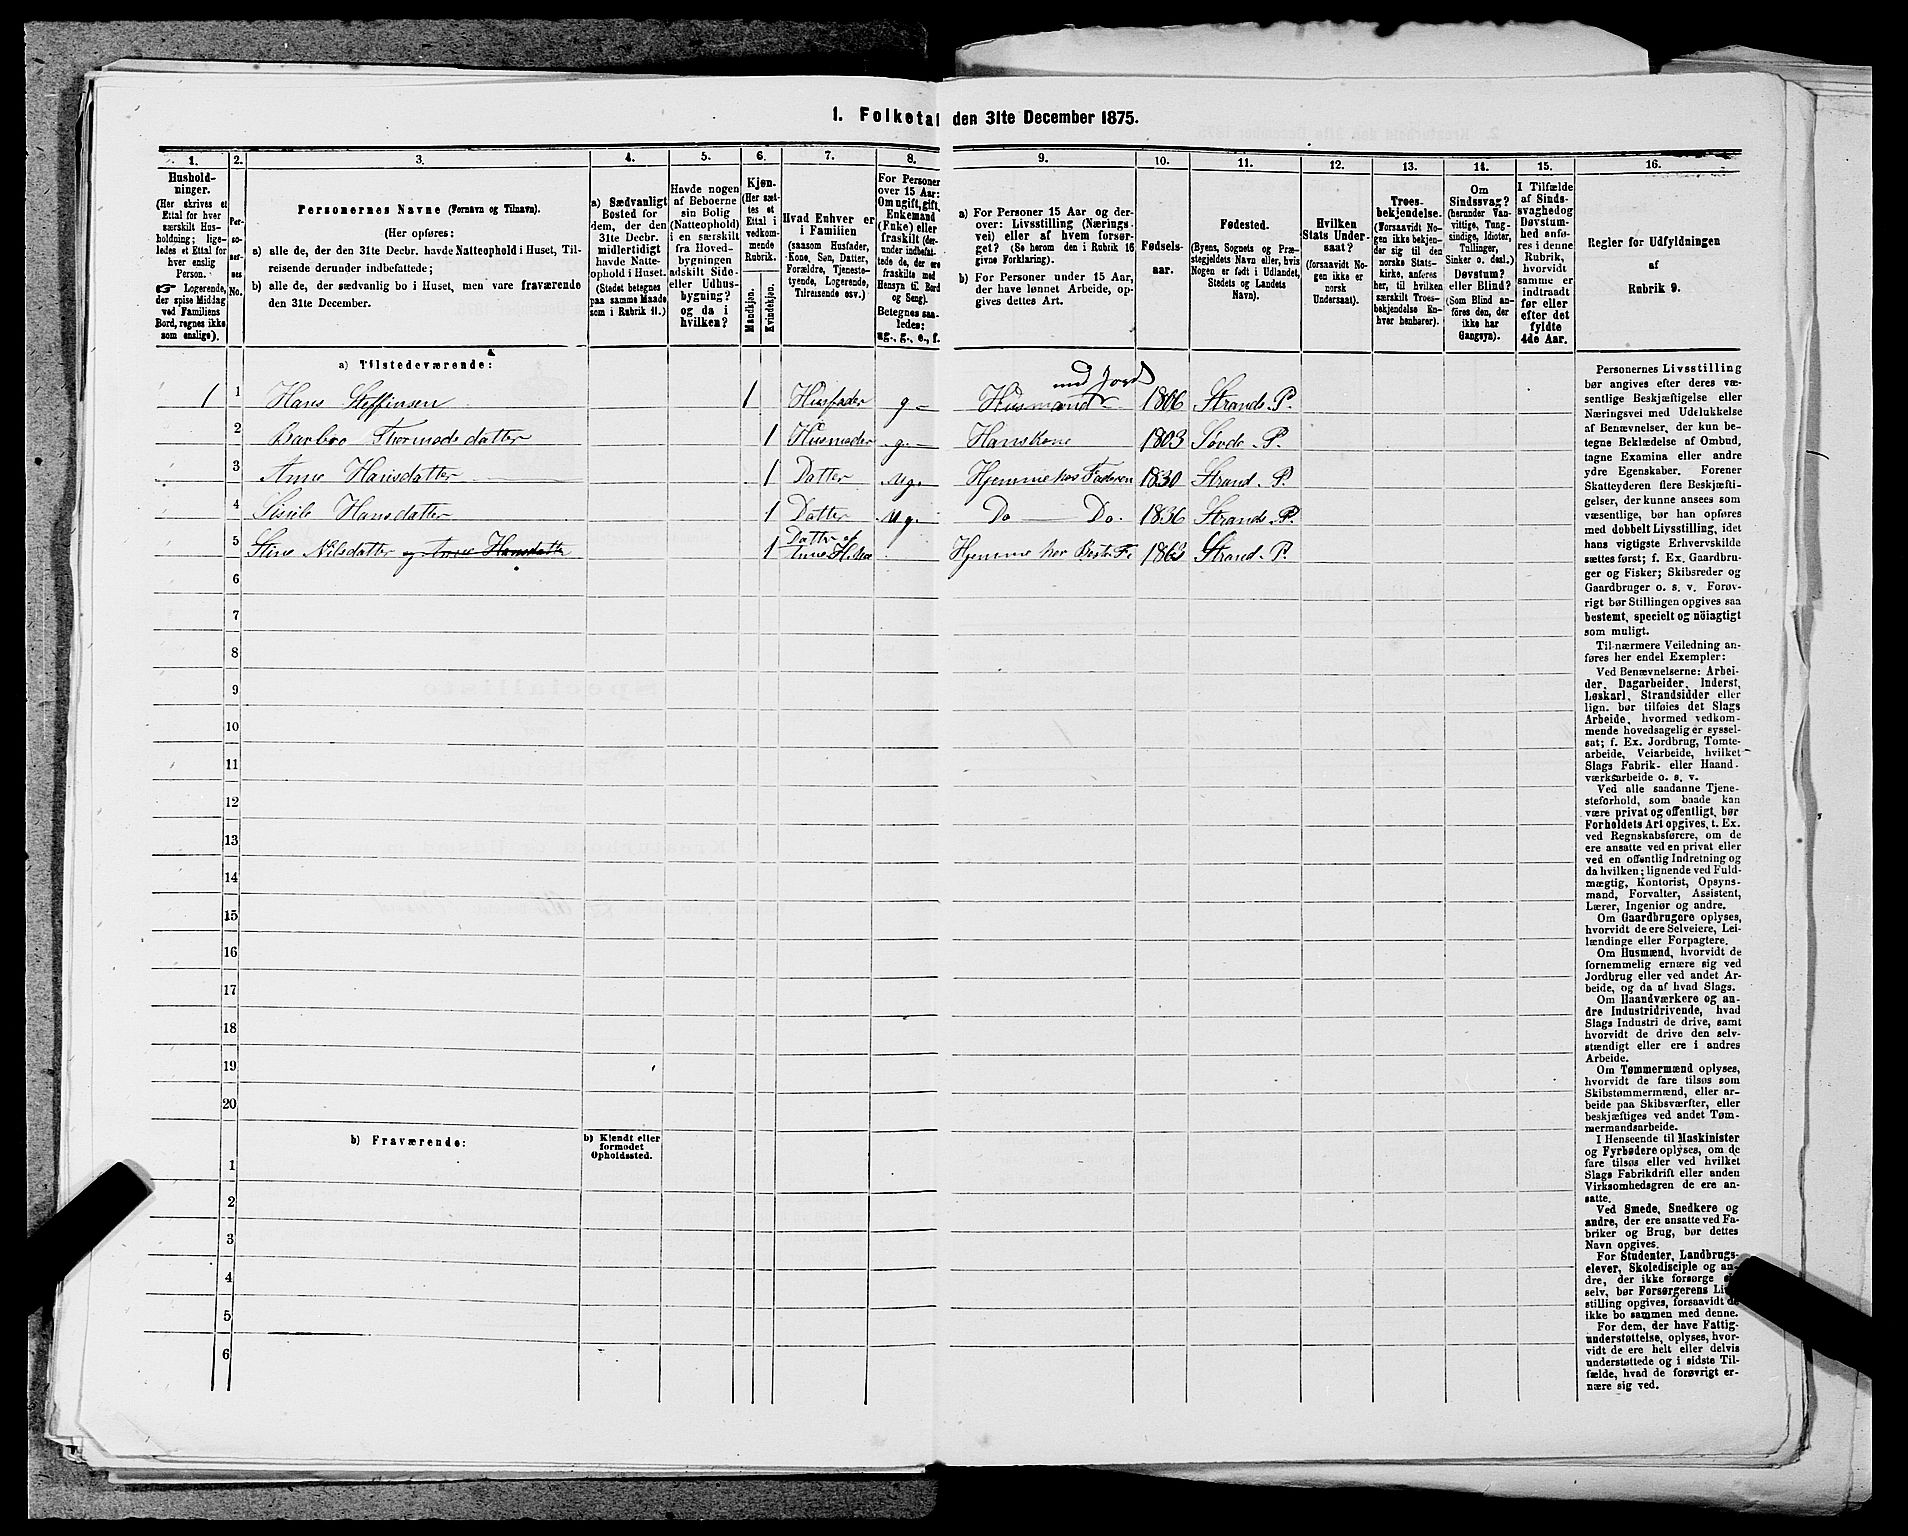 1. Folketal den 31te December 1875.
1. 2. 3. 4. 5. 6. 7. 8. 9. 10. 11. 12. 13. 14. 15. 16.
Hushold-
ninger.
(Her skrives et
Ettal for hver
særskilt Hus-
holdning; lige-
ledes et Ettal for
hver enslig
Person.
☞ Logerende,
der spise Middag
ved Familiens
Bord, regnes ikke
som enslige).
Per-
so-
ner-
nes
No.
Personernes Navne (Fornavn og Tilnavn).
(Her opføres:
a) alle de, der den 31te Decbr. havde Natteophold i Huset, Til-
reisende derunder indbefattede;
b) alle de, der sædvanlig bo i Huset, men vare fraværende
den 31te December.
a) Sædvanligt
Bosted for
dem, der den
31te Decbr.
midlertidigt
havde Natte-
ophold i Huset.
(Stedet betegnes
paa samme Maade
som i Rubrik 11.)
Havde nogen
af Beboerne
sin Bolig
(Natteophold)
i en særskilt
fra Hoved-
bygningen
adskilt Side-
eller Udhus-
bygning?
og da i
hvilken?
Kjøn.
(Her sæt-
tes et
Ettal i
vedkom-
mende
Rubrik.
Mandkjøn.
Kvindekjøn.
Hvad Enhver er
i Familien
(saasom Husfader,
Kone, Søn, Datter,
Forældre, Tjeneste-
tyende, Logerende,
Tilreisende osv.)
For Personer
over 15 Aar:
Om ugift, gift,
Enkemand
(Enke) eller
fraskilt (der-
under indbefat-
tede de, der ere
fraskilte med
Hensyn til Bord
og Seng).
Betegnes saa-
ledes:
ug., g., e., f.
a) For Personer 15 Aar og der-
over: Livsstilling (Nærings-
vei) eller af hvem forsør-
get? (Se herom den i Rubrik 16
givne Forklaring).
b) For Personer under 15 Aar,
der have lønnet Arbeide, op-
gives dettes Art.
Fødsels-
aar.
Fødested.
(Byens, Sognets og Præ-
stegjeldets Navn eller, hvis
Nogen er født i Udlandet,
Stedets og Landets
Navn).
Hvilken
Stats Under-
saat?
(forsaavidt No-
gen ikke er
norsk
Undersaat).
Troes-
bekjendelse.
(Forsaavidt No-
gen ikke bekjen-
der sig til den
norske Stats-
kirke, anføres
her, til hvilken
særskilt Troes-
bekjendelse En-
hver henhører).
Om
Sindssvag?
(herunder Van-
vittige, Tung-
sindige, Idioter,
Tullinger,
Sinker o. desl.)
Døvstum?
eller Blind?
(Som Blind an-
føres den, der
ikke har
Gangsyn).
I Tilfælde
af Sinds-
svaghed og
Døvstum-
hed anfø-
res i denne
Rubrik,
hvorvidt
samme er
indtraadt
før eller
efter det
fyldte
4de Aar.
Regler for Udfyldningen
af
Rubrik 9.
a) Tilstedeværende:
1 1 Hans Steffensen 1 Husfader g – Husmand med Jord 1806 Strands P.
2 Barbro Thormodsdatter 1 Husmoder g. – Hans Kone 1803 Søvde P.
3 Anne Hansdatter 1 Datter ug. Hjemme hos Faderen 1830 Strand P.
4 Sisile Hansdatter 1 Datter ug. Do Do. 1836 Strands P.
5 Stine Nilsdatter og Anne Hansdatter 1 Datter af Anne H. Hjemme hos 186 Strand P.
6
7
8
9
10
11
12
13
14
15
16
17
18
19
20
b) Fraværende:
b) Kjendt eller
formodet
Opholdssted.
1
2
3
4
5
6
Personernes Livsstilling
bør angives efter deres væ-
sentlige Beskjæftigelse eller
Næringsvei med Udelukkelse
af Benævnelser, der kun be-
tegne Beklædelse af Ombud,
tagne Examina eller andre
ydre Egenskaber. Forener
Skatteyderen flere Beskjæfti-
gelser, der kunne ansees som
væsentlige, bør han opføres
med dobbelt Livsstilling, idet
hans vigtigste Erhvervskilde
sættes først; f. Ex. Gaardbru-
ger og Fisker; Skibsreder og
Gaardbruger o. s. v. Forøv-
rigt bør Stillingen opgives saa
bestemt, specielt og nöiagtigt
som muligt.
Til nærmere Veiledning an-
føres her endel Exempler:
Ved Benævnelserne: Arbei-
der, Dagarbeider, Inderst,
Løskarl, Strandsidder eller
lign. bør tilføies det Slags
Arbeide, hvormed vedkom-
mende hovedsagelig er syssel-
sat; f. Ex. Jordbrug, Tomte-
arbeide, Veiarbeide, hvilket
Slags Fabrik- eller Haand-
værksarbeide o. s. v.
Ved alle saadanne Tjene-
steforhold, som baade kan
være privat og offentligt, bør
Forholdets Art opgives, t. Ex.
ved Regnskabsførere, om de
ere ansatte ved en privat eller
ved en offentlig Indretning og
da hvilken; lignende ved Fuld-
mægtig, Kontorist, Opsyns-
mand, Forvalter, Assistent,
Lærer, Ingeniør og andre.
Om Gaardbrugere oplyses,
hvorvidt de ere Selveiere, Lei-
lændinge eller Forpagtere.
Om Husmænd, hvorvidt de
fornemmelig ernære sig ved
Jordbrug eller ved andet Ar-
beide, og da af hvad Slags.
Om Haandværkere og an-
dre Industridrivende, hvad
Slags Industri de drive, samt
hvorvidt de drive den selv-
stændigt eller ere i andres
Arbeide.
Om Tømmermænd oplyses,
hvorvidt de fare tilsøs som
Skibstømmermænd, eller ar-
beide paa Skibsværfter, eller
beskjæftiges ved andet Tøm-
mermandsarbeide.
I Henseende til Maskinister
og Fyrbødere oplyses, om de
fare tilsøs eller ved hvilket
Slags Fabrikdrift eller anden
Virksomhedsgren de ere an-
satte.
Ved Smede, Snedkere og
andre, der ere ansatte ved Fa-
briker og Brug, bør dettes
Navn opgives.
For Studenter, Landbrugs-
elever, Skoledisciple og an-
dre, der ikke forsørge sig
selv, bør Forsørgerens Livs-
stilling opgives, forsaavidt de
ikke bo sammen med denne.
For dem, der have Fattig-
understøttelse, oplyses, hvor-
vidt de ere helt eller delvis
understøttede og i sidste Til-
fælde, hvad de forøvrigt er-
nære sig ved.